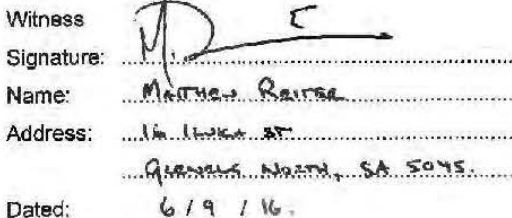 Witness
Signature:
Name: MATTHEW REITER
Address: 16 ILUKA ST
GLENELG NORTH, SA 5045.
Dated: 6 / 9 / 16.